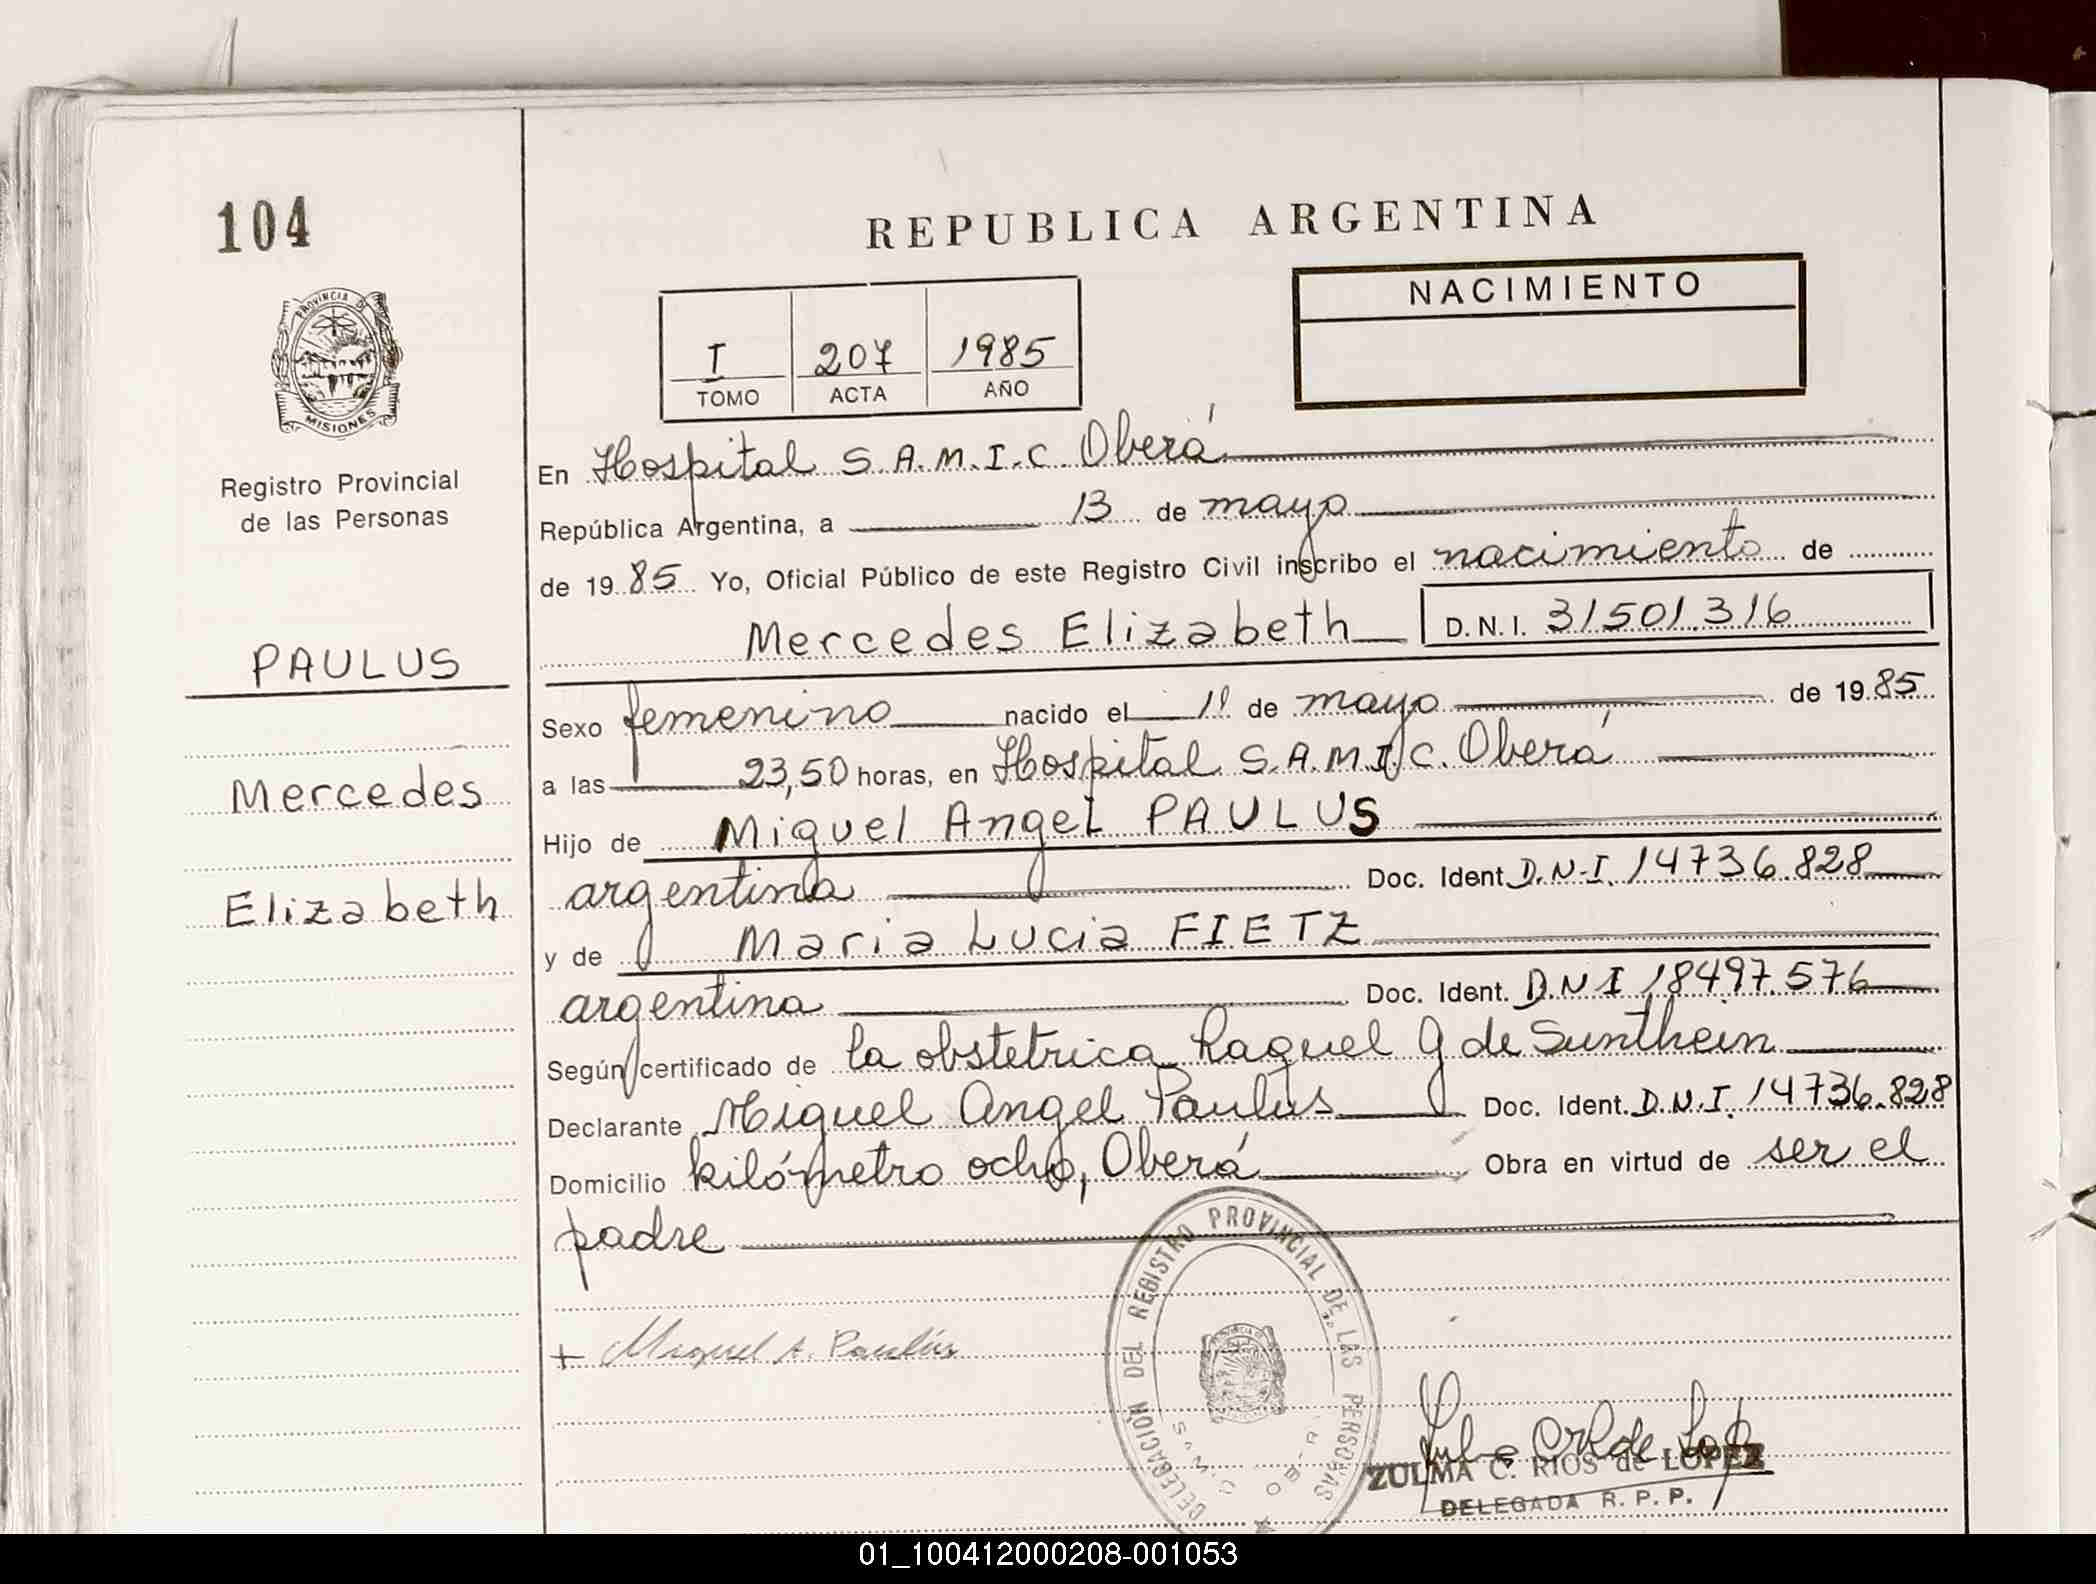 104
REPUBLICA ARGENTINA
NACIMIENTO
I 207 1985
TOMO ACTA AÑO
PROVINCIA DE
MISIONES
Registro Provincial
de las Personas
PAULUS
Mercedes
Elizabeth
En Hospital S.A.M.I.C. Oberá
República Argentina, a 13 de mayo
de 1985 Yo, Oficial Público de este Registro Civil inscribo el nacimiento de
Mercedes Elizabeth D.N.I. 31501.316
Sexo femenino nacido el 11 de mayo de 1985
a las 23,50 horas, en Hospital S.A.M.I.C. Oberá
Hijo de Miguel Angel PAULUS
argentina Doc. Ident. D.N.I. 14736.828
y de Maria Lucia FIETZ
argentina Doc. Ident. D.N.I 18497.576
Según certificado de la obstetrica Raquel G de Sunthein
Declarante Miguel Angel Paulus Doc. Ident. D.N.I. 14736.828
Domicilio kilómetro ocho, Oberá Obra en virtud de ser el
padre
+ Miguel A. Paulus
DELEGACION DEL REGISTRO PROVINCIAL DE LAS PERSONAS
ZULMA C. RIOS de LOPEZ
DELEGADA R. P. P.
01_100412000208-001053